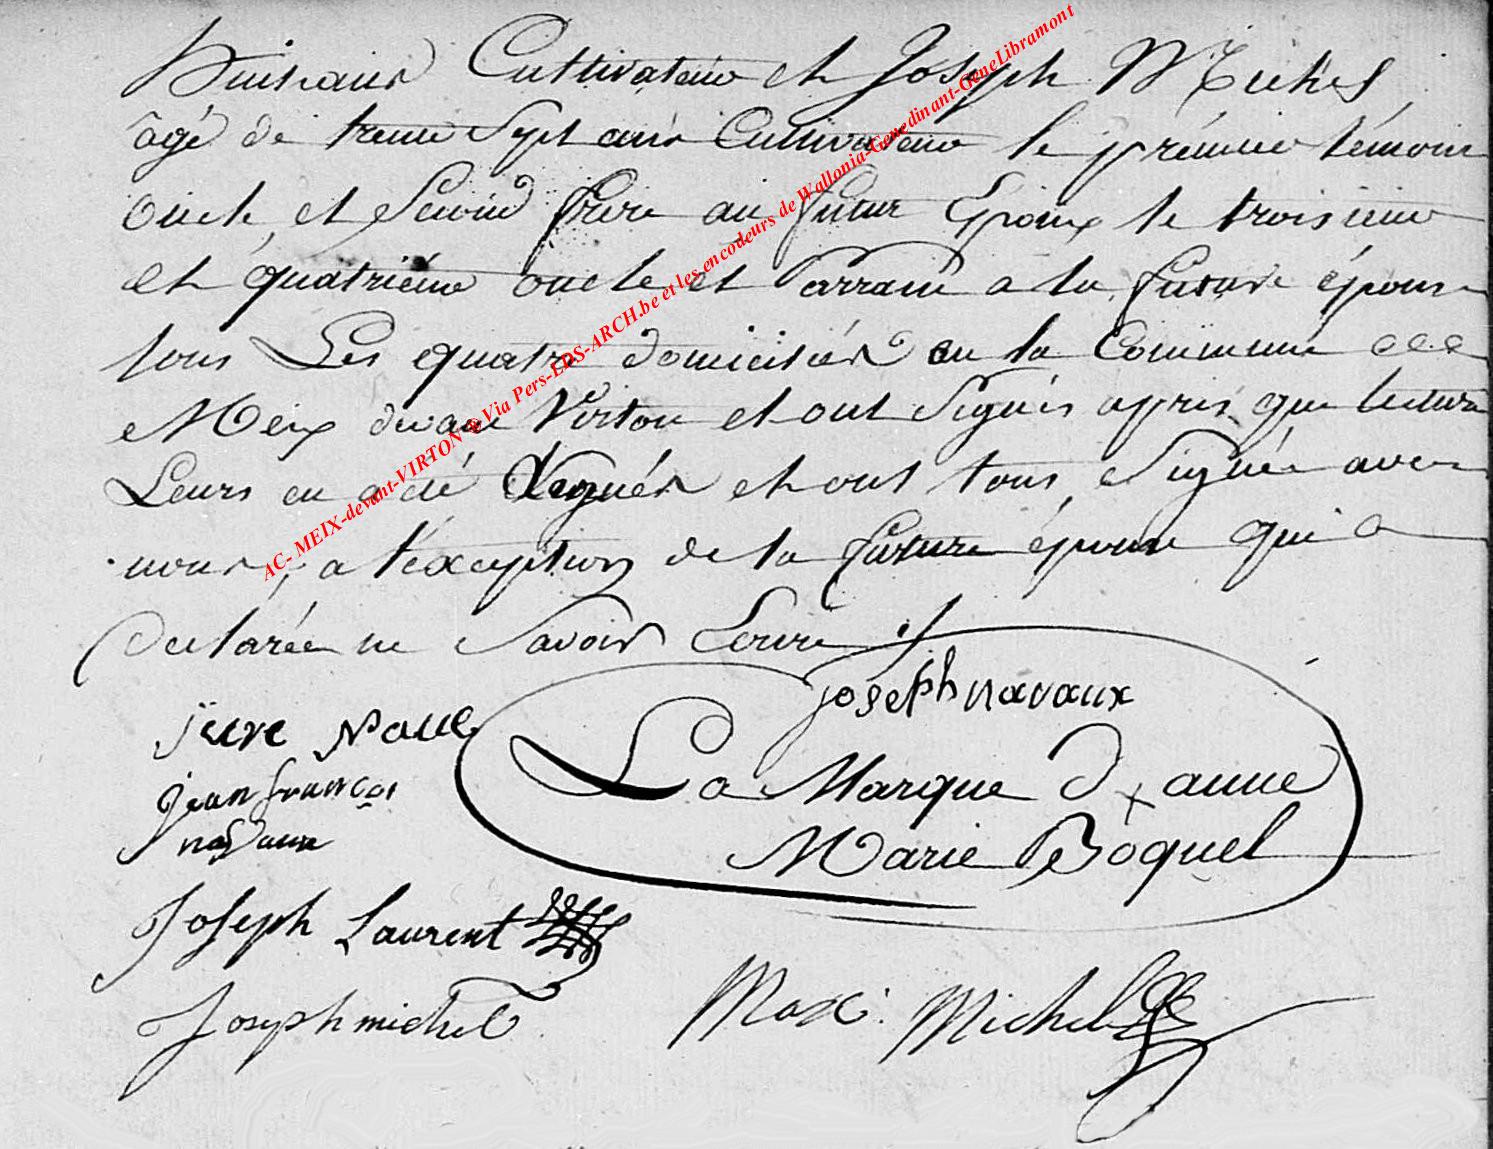 huit ans Cultivateur et Joseph Michel
âgé de trente Sept ans Cultivateur le prémier témoin
oncle et Second frere au futur Epoux le troisieme
et quatriéme oncle et Parrain a la future épouse
tous Les quatre domiciliés en la Commune de
Meix devant Virton et ont Signés après que lecture
Leurs en a été et ont tous Signée avec
nous, a l'éxception de la future épouse qui a
Declarée ne Savoir Ecrire ./.
joseph navaux
La Marque D x anne
Marie Boquel
jean françoi
navaux
Joseph Laurent
Joseph michel
Max: Michel
AC- MEIX-devant-VIRTON & Via Pers-LDS-ARCH.be et les encodeurs de Wallonia-Genedinant-GeneLibramont